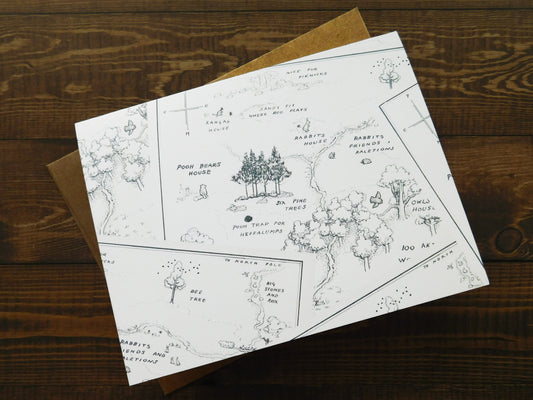 NICE FOR
PICNICKS
SANDY PIT
WHERE ROO PLAYS
KANGAS
HOUSE
RABBITS
HOUSE
RABBITS
FRIENDS &
RALETIONS
POOH BEARS
HOUSE
SIX PINE
TREES
POOH TRAP FOR
HEFFALUMPS
OWLS
HOUSE
100 AK
W
TO NORTH POLE
BEE
TREE
BIG
STONES
AND
ROX
RABBITS
FRIENDS AND
RALETIONS
TO NORTH